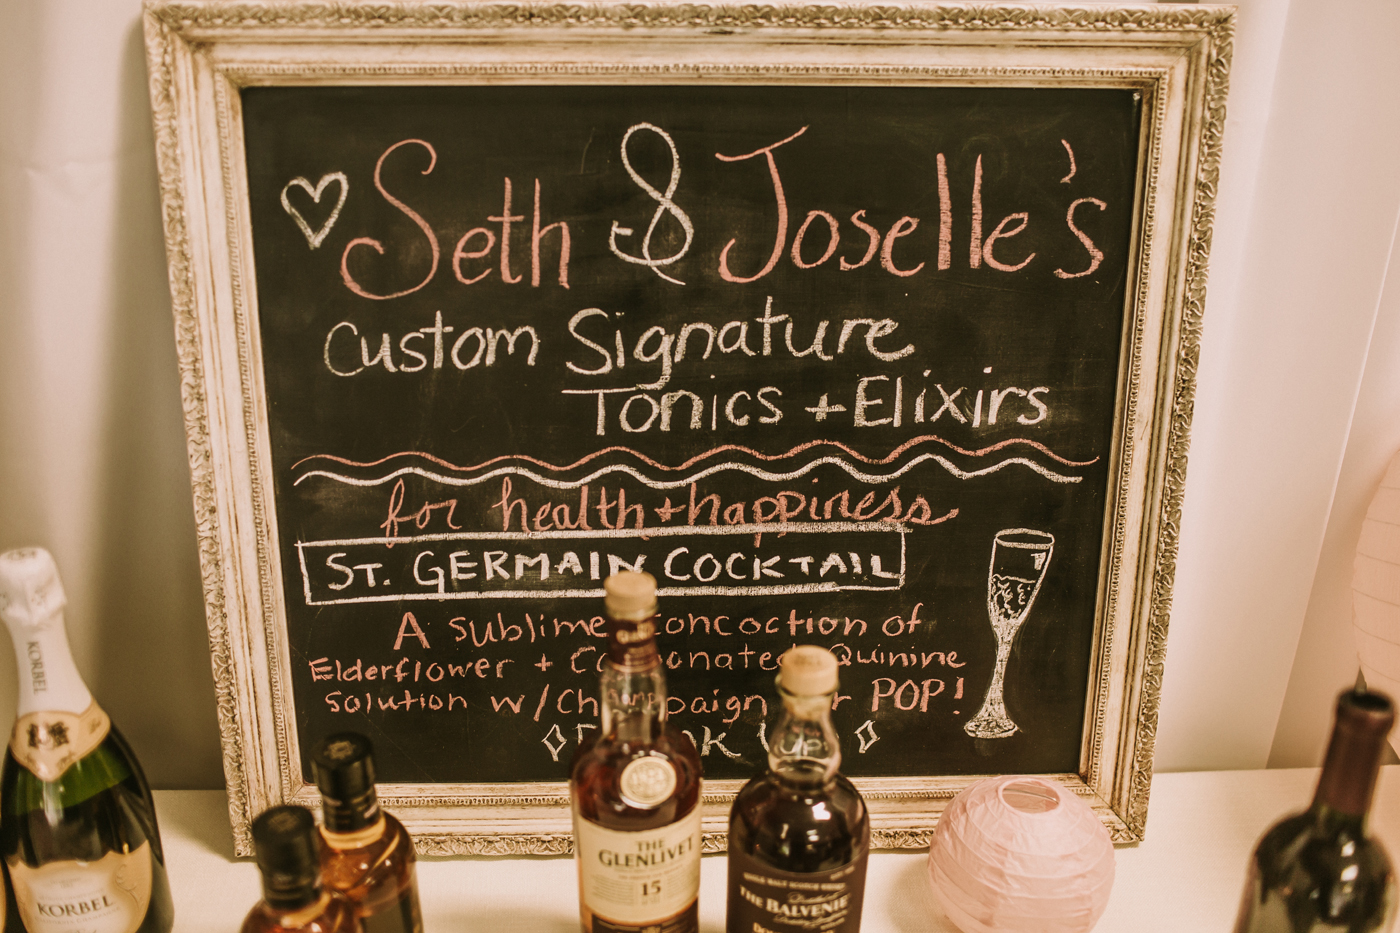 Seth & Joselle's
Custom Signature
Tonics + Elixirs
for health + happiness
ST. GERMAIN COCKTAIL
A sublime concoction of
Elderflower + Carbonated Quinine
solution w/ Champaign for POP!
UP!
KORBEL
KORBEL
THE
GLENLIVET
15
THE BALVENIE